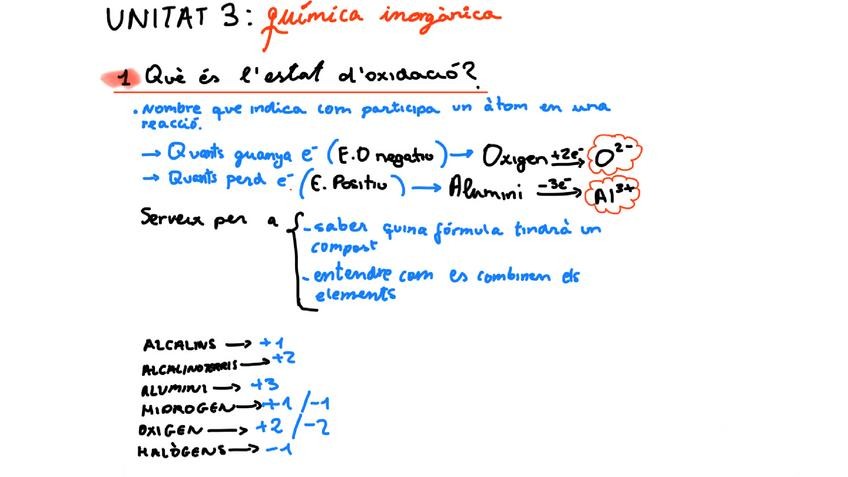 UNITAT 3: química inorgànica
1 Què és l'estat d'oxidació?
• Nombre que indica com participa un àtom en una
reacció.
→ Quants guanya e⁻ (E.O negatiu) → Oxigen +2e⁻→ O²⁻
→ Quants perd e⁻ (E. Positiu) → Alumini -3e⁻→ Al³⁺
Serveix per a { - saber quina fórmula tindrà un
compost
- entendre com es combinen els
elements
ALCALINS → +1
ALCALINOTERRIS → +2
ALUMINI → +3
HIDROGEN → +1 / -1
OXIGEN → +2 / -2
HALÒGENS → -1